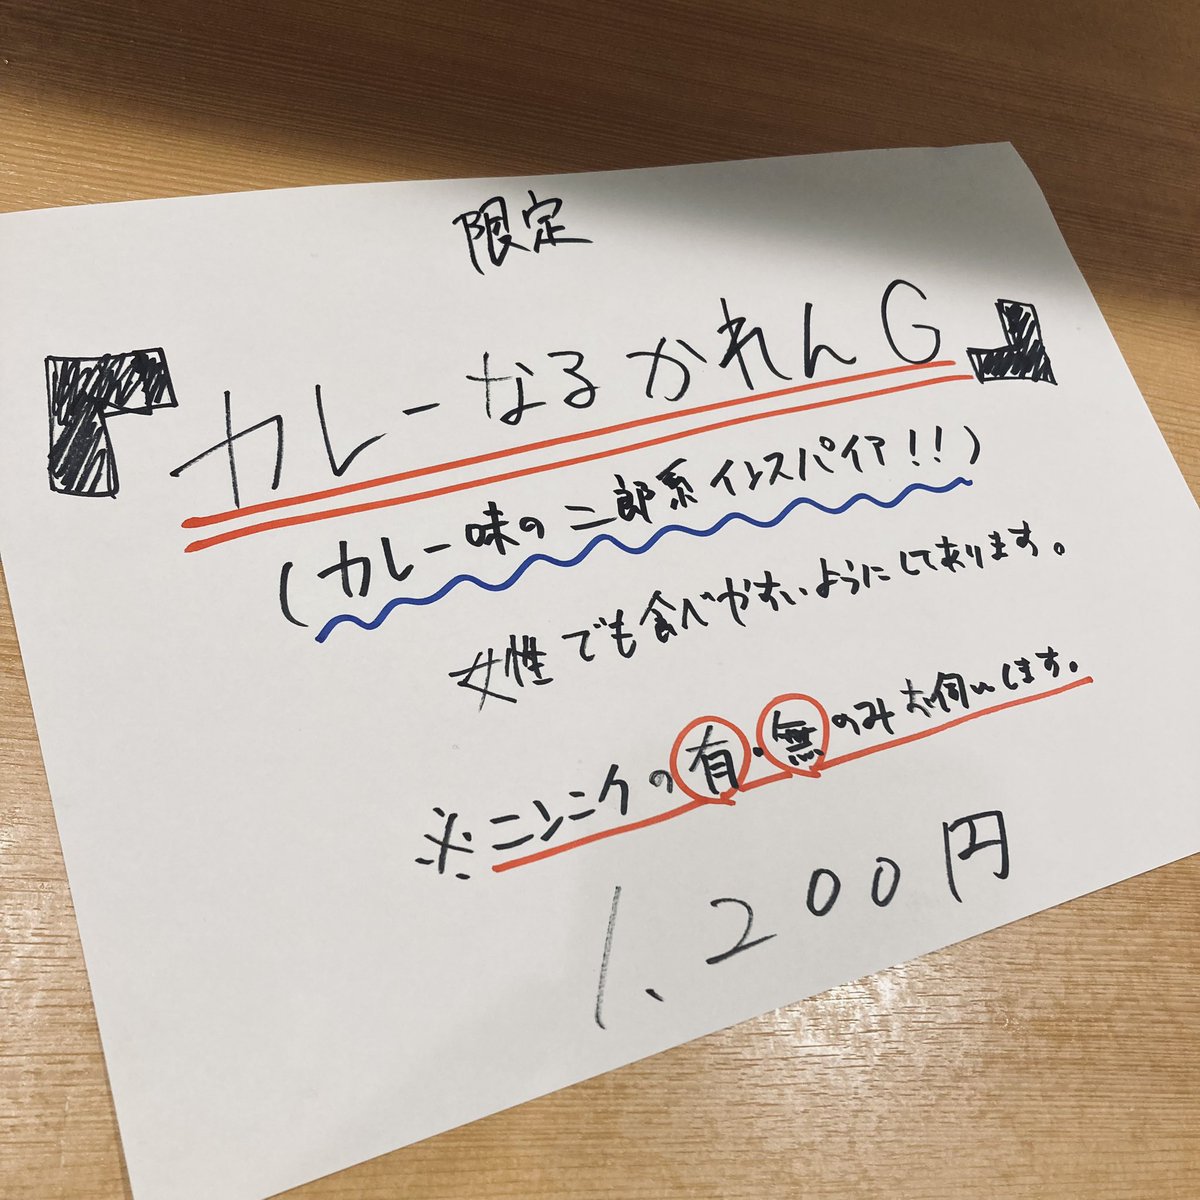 限定
『カレーなるかれんG』
(カレー味の二郎系インスパイア!!)
女性でも食べやすいようにしてあります。
※ニンニクの有・無のみお伺いします。
1、200円